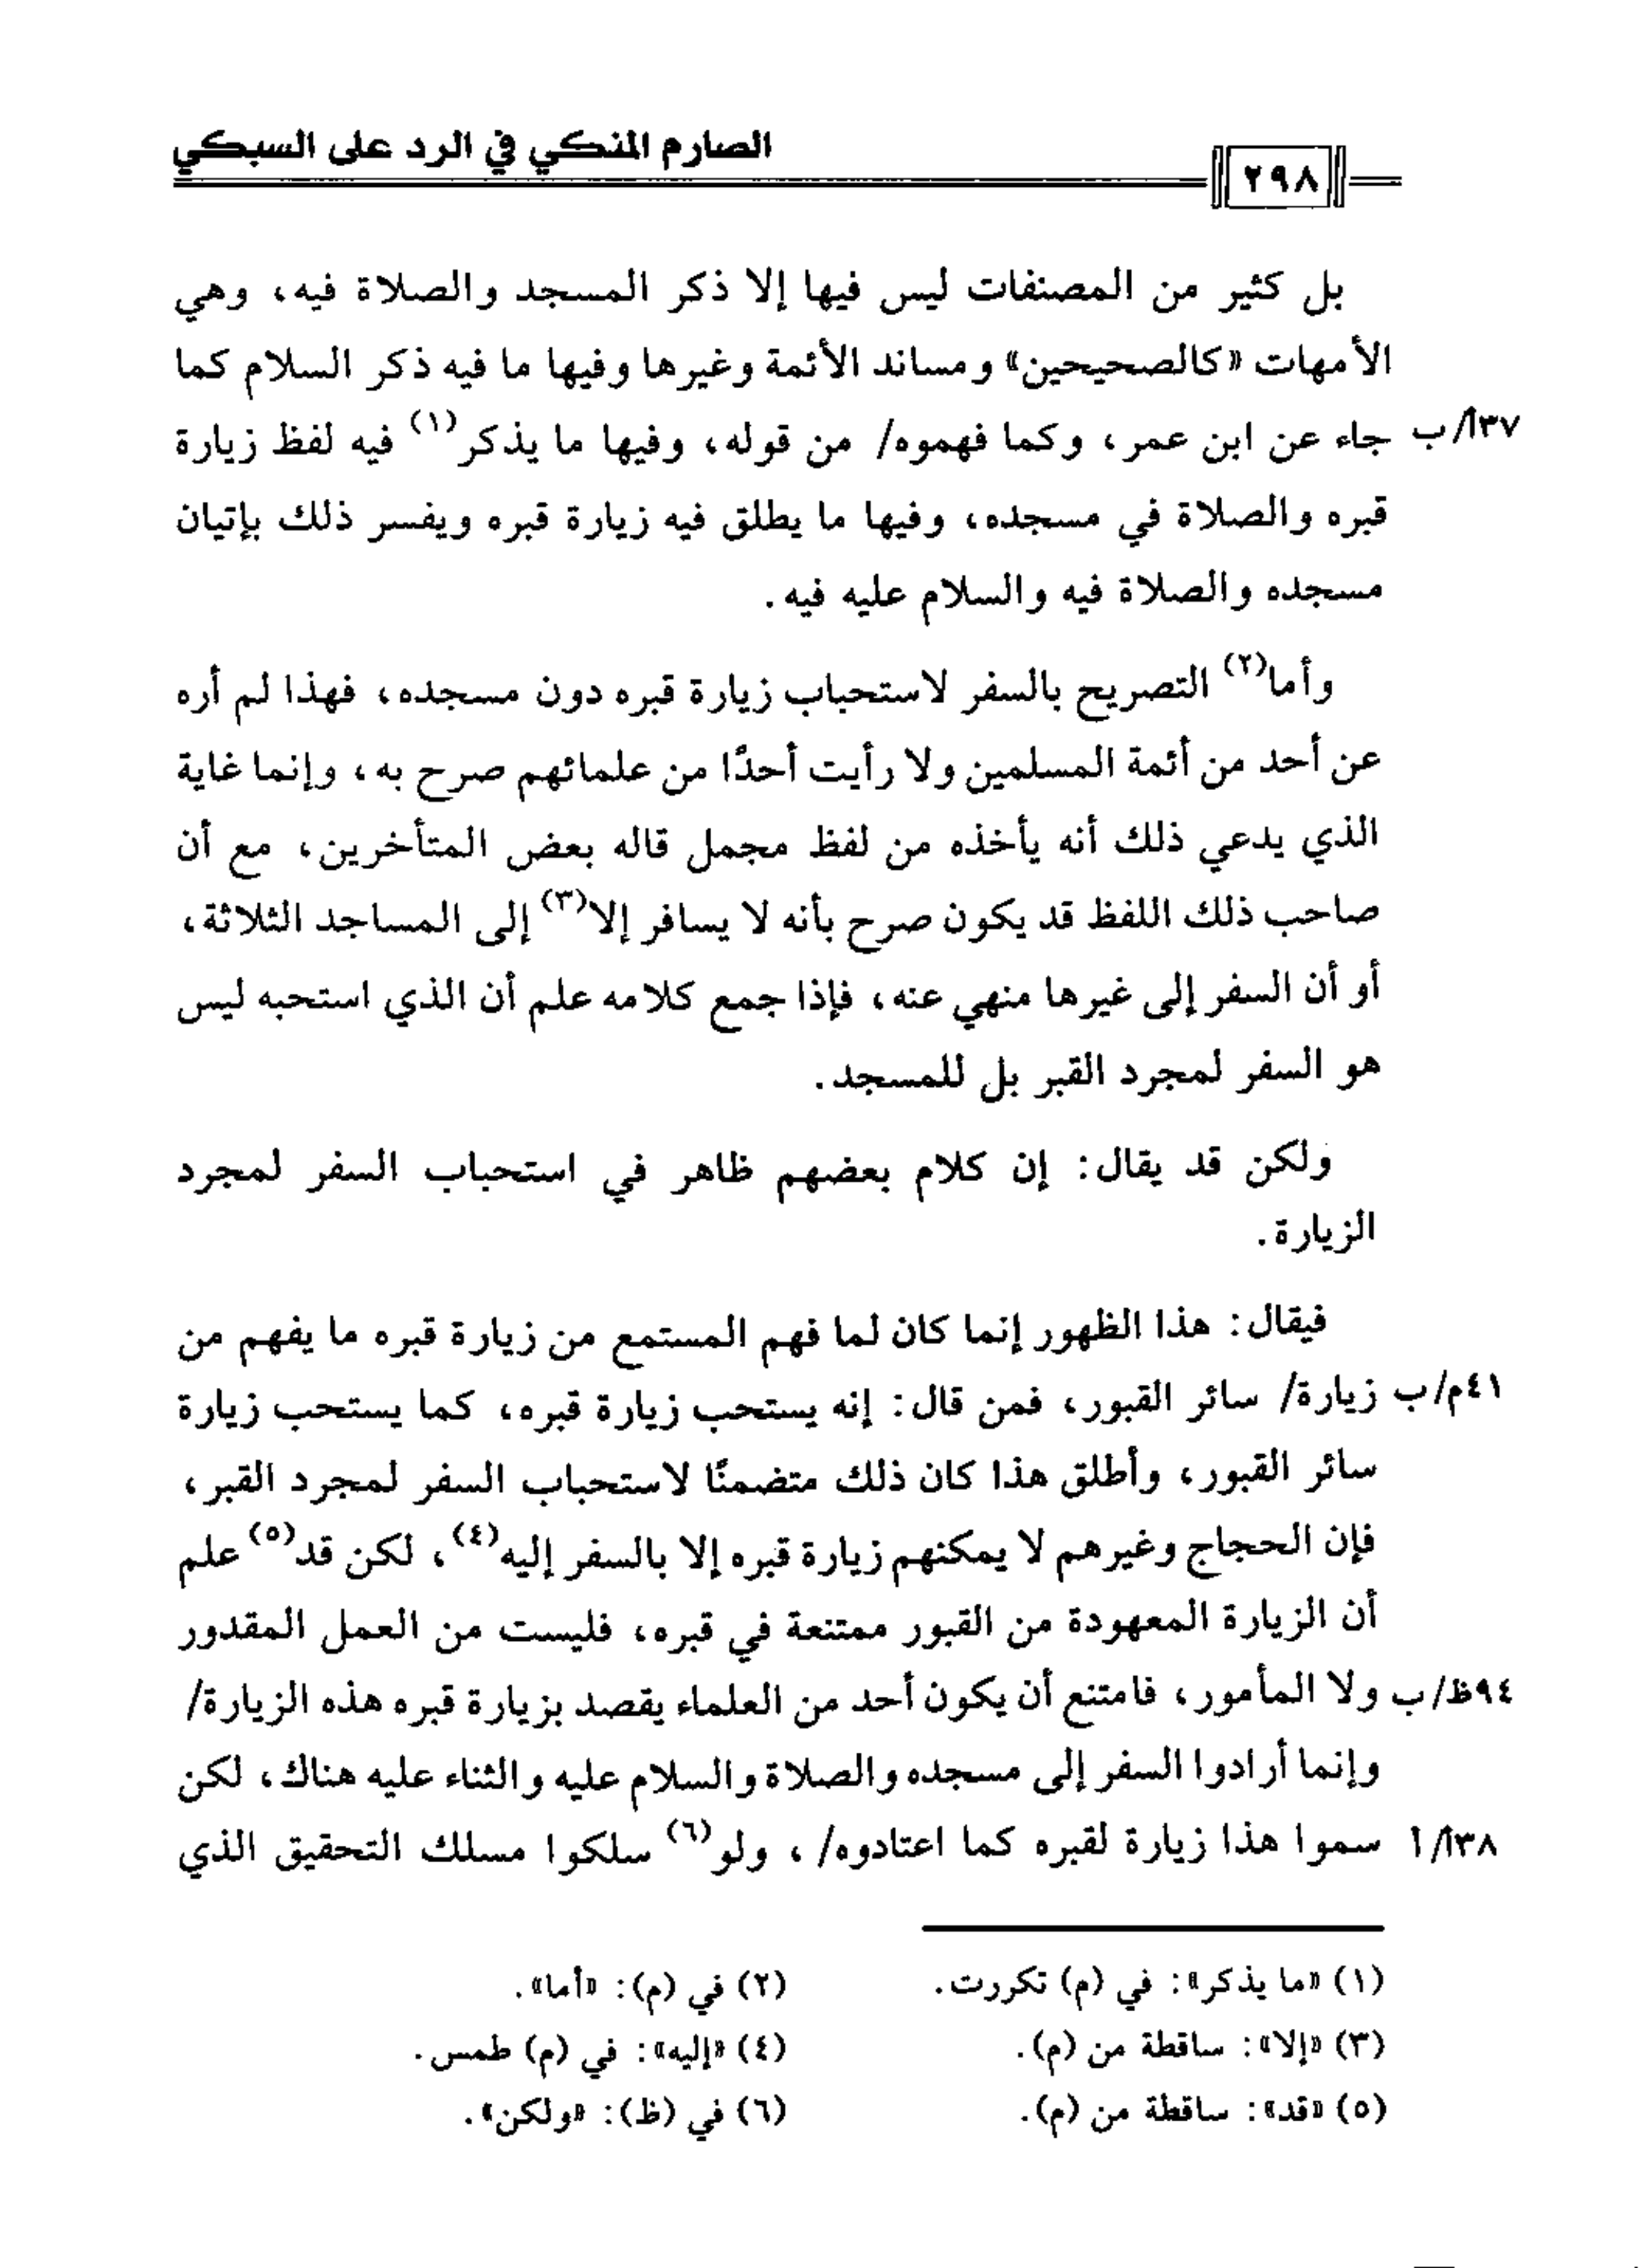 الصارم المنكي في الرد على السبكي
٢٩٨
بل كثير من المصنفات ليس فيها إلا ذكر المسجد والصلاة فيه، وهي
الأمهات «كالصحيحين» ومساند الأئمة وغيرها وفيها ما فيه ذكر السلام كما
١٣٧/ب جاء عن ابن عمر، وكما فهموه/ من قوله، وفيها ما يذكر(١) فيه لفظ زيارة
قبره والصلاة في مسجده، وفيها ما يطلق فيه زيارة قبره ويفسر ذلك بإتيان
مسجده والصلاة فيه والسلام عليه فيه.
وأما(٢) التصريح بالسفر لاستحباب زيارة قبره دون مسجده، فهذا لم أره
عن أحد من أئمة المسلمين ولا رأيت أحدًا من علمائهم صرح به، وإنما غاية
الذي يدعي ذلك أنه يأخذه من لفظ مجمل قاله بعض المتأخرين، مع أن
صاحب ذلك اللفظ قد يكون صرح بأنه لا يسافر إلا(٣) إلى المساجد الثلاثة،
أو أن السفر إلى غيرها منهي عنه، فإذا جمع كلامه علم أن الذي استحبه ليس
هو السفر لمجرد القبر بل للمسجد.
ولكن قد يقال: إن كلام بعضهم ظاهر في استحباب السفر لمجرد
الزيارة.
فيقال: هذا الظهور إنما كان لما فهم المستمع من زيارة قبره ما يفهم من
٤١م/ب زيارة/ سائر القبور، فمن قال: إنه يستحب زيارة قبره، كما يستحب زيارة
سائر القبور، وأطلق هذا كان ذلك متضمنًا لاستحباب السفر لمجرد القبر،
فإن الحجاج وغيرهم لا يمكنهم زيارة قبره إلا بالسفر إليه(٤)، لكن قد(٥) علم
أن الزيارة المعهودة من القبور ممتنعة في قبره، فليست من العمل المقدور
٩٤ظ/ب ولا المأمور، فامتنع أن يكون أحد من العلماء يقصد بزيارة قبره هذه الزيارة/
وإنما أرادوا السفر إلى مسجده والصلاة والسلام عليه والثناء عليه هناك، لكن
١٣٨/أ سموا هذا زيارة لقبره كما اعتادوه/، ولو(٦) سلكوا مسلك التحقيق الذي
(١) «ما يذكر»: في (م) تكررت.
(٢) في (م): «أما».
(٣) «إلا»: ساقطة من (م).
(٤) «إليه»: في (م) طمس.
(٥) «قد»: ساقطة من (م).
(٦) في (ظ): «ولكن».